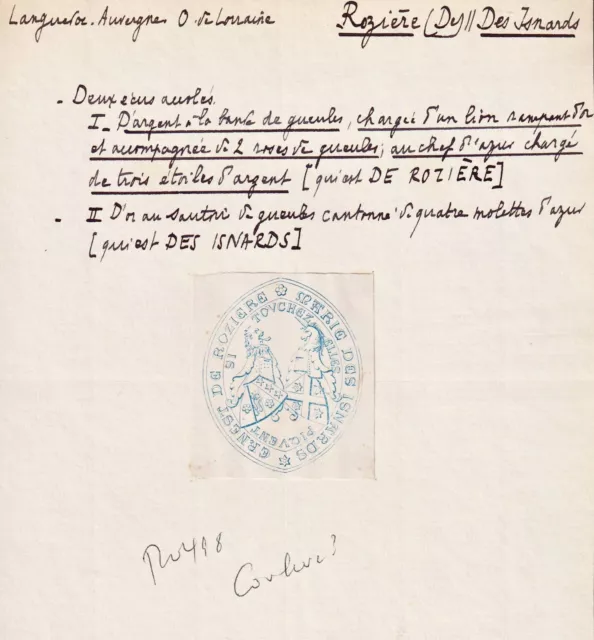 Languedoc. Auvergne O. de Lorraine
Rozière (De) // Des Isnards
- Deux écus accolés.
I _ D'argent à la bande de gueules, chargée d'un lion rampant d'or
et accompagnée de 2 roses de gueules; au chef d'azur chargé
de trois étoiles d'argent [qui est DE ROZIÈRE]
- II D'or au sautoir de gueules cantonné de quatre molettes d'azur
[qui est DES ISNARDS]
ERNEST DE ROZIERE MARIE DES ISNARDS
SI TOVCHEZ ELLES PIQVENT